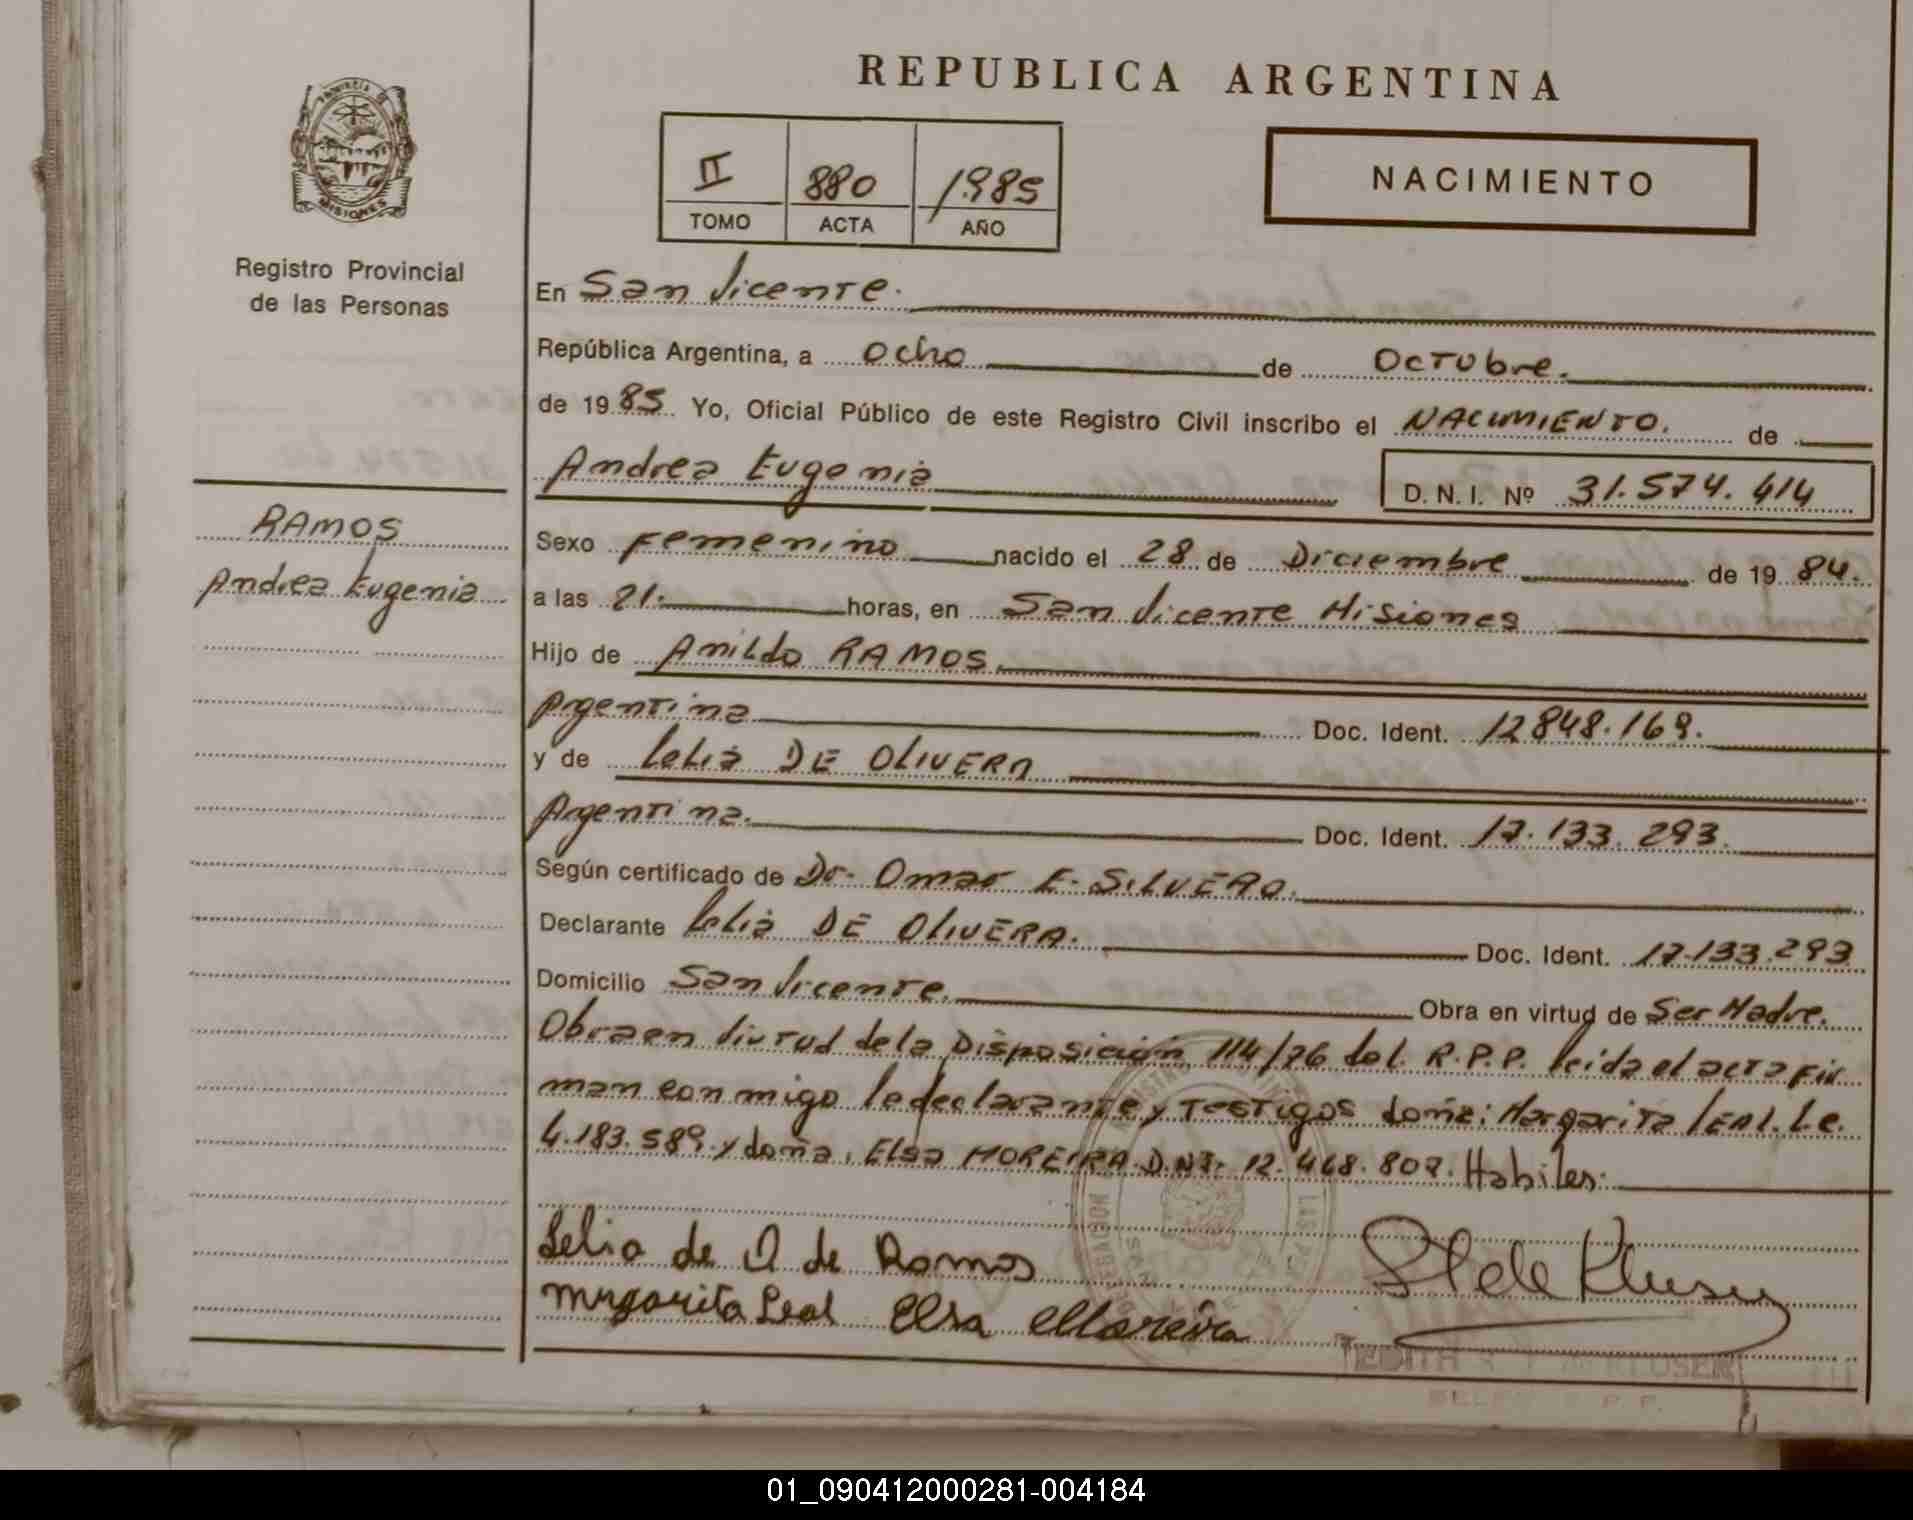 REPUBLICA ARGENTINA
PROVINCIA DE
MISIONES
Registro Provincial
de las Personas
II 880 1985
TOMO ACTA AÑO
NACIMIENTO
En San Vicente.
República Argentina, a ocho de Octubre.
de 1985 Yo, Oficial Público de este Registro Civil inscribo el NACIMIENTO. de
Andrea Eugenia D. N. I. Nº 31.574.414
RAMOS
Andrea Eugenia
Sexo Femenino nacido el 28 de Diciembre de 1984.
a las 21. horas, en San Vicente Misiones
Hijo de Anildo RAMOS
Argentina Doc. Ident. 12848.169.
y de Lelia DE OLIVERA
Argentina. Doc. Ident. 17.133.293.
Según certificado de Dr. Omar E. SILVERO.
Declarante Lelia DE OLIVERA. Doc. Ident. 17.133.293
Domicilio San Vicente. Obra en virtud de Ser Madre.
Obra en virtud de la Disposición 114/76 del R.P.P. leida el acta fir
man conmigo la declarante y testigos doña: Margarita LEAL. L.e.
4.183.589. y doña. Elsa MOREIRA D.N.I. 12.468.807. Habiles.
Lelia de O de Ramos
Margarita Leal Elsa Moreira
EDITH KLUSEN
01_090412000281-004184